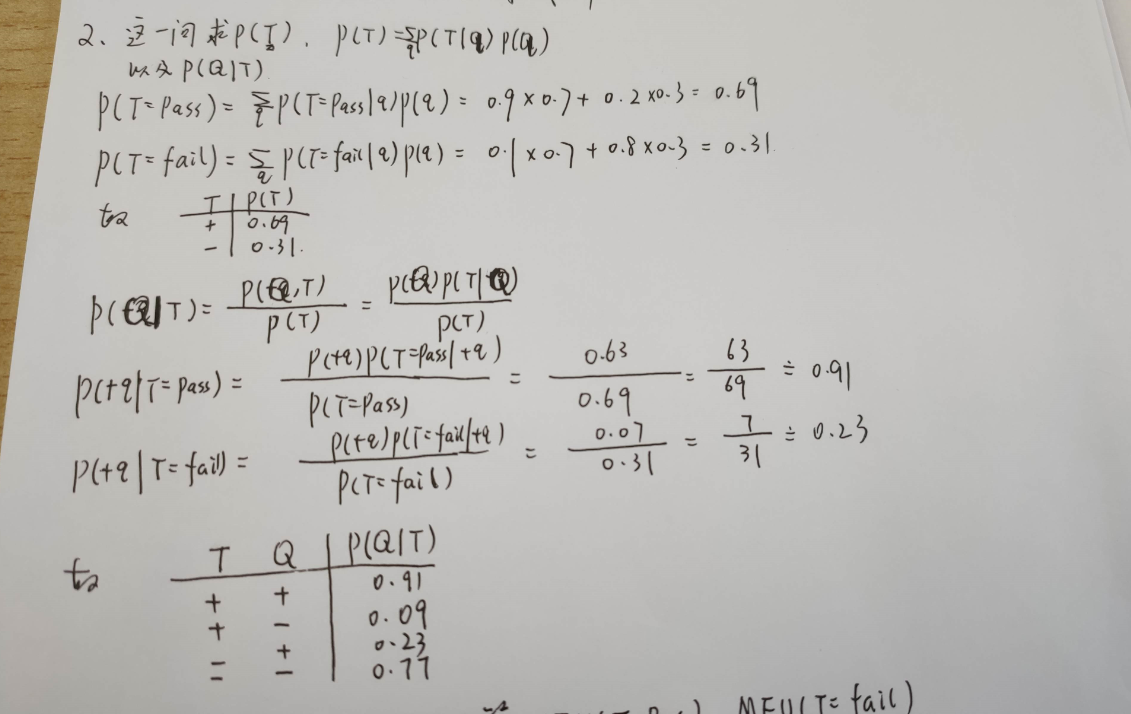 2、这一问求P(T). P(T)=∑_q P(T|q)P(q)
以及P(Q|T)
P(T=Pass)= ∑_q P(T=Pass|q)P(q) = 0.9×0.7+0.2×0.3=0.69
P(T=fail)= ∑_q P(T=fail|q)P(q) = 0.1×0.7+0.8×0.3=0.31
T | P(T)
+ | 0.69
- | 0.31.
P(Q|T)= P(Q,T)/P(T) = P(Q)P(T|Q)/P(T)
P(+q|T=Pass)= P(+q)P(T=Pass|+q)/P(T=Pass) = 0.63/0.69 = 63/69 ≐ 0.91
P(+q|T=fail)= P(+q)P(T=fail|+q)/P(T=fail) = 0.07/0.31 = 7/31 ≐ 0.23
T Q | P(Q|T)
+ + | 0.91
+ - | 0.09
- + | 0.23
- - | 0.77
MEU(T=fail)